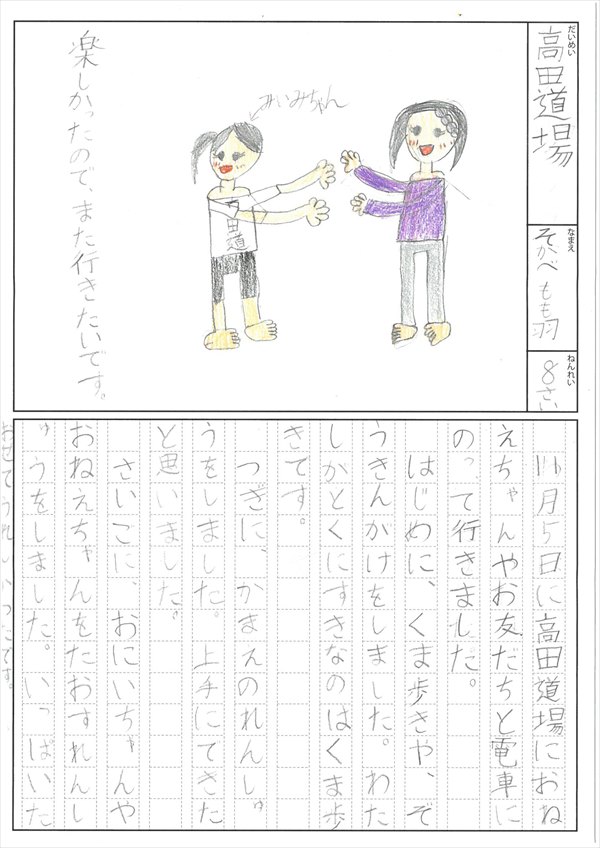 だいめい
高田道場
なまえ
そがべ もも羽
ねんれい
8さい
あいみちゃん
田道
楽しかったので、また行きたいです。
11月5日に高田道場におね
えちゃんやお友だちと電車に
のって行きました。
はじめに、くま歩きや、ぞ
うきんがけをしました。わた
しがとくにすきなのはくま歩
きです。
つぎに、かまえのれんしゅ
うをしました。上手にてきた
と思いました。
さいごに、おにいちゃんや
おねえちゃんをたおすれんし
ゅうをしました。いっぱいた
おせてうれしかったです。